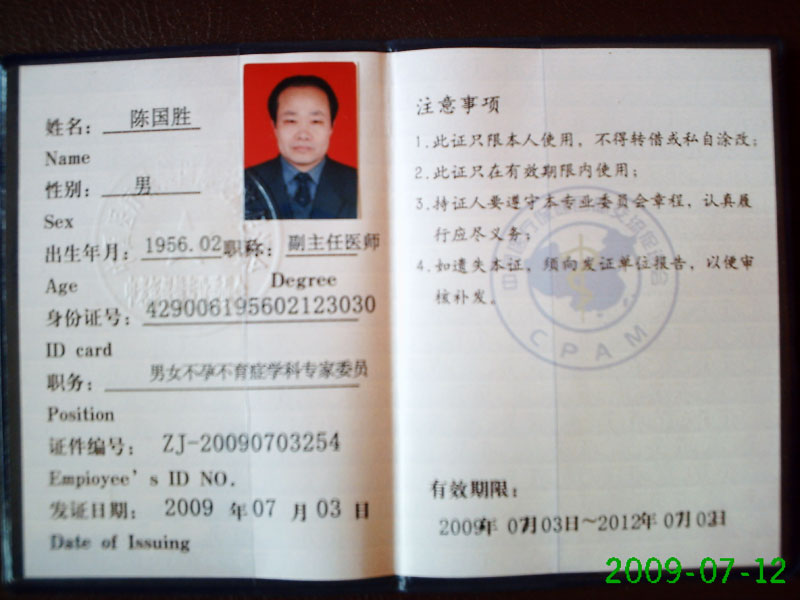 姓名：陈国胜
Name
性别：男
Sex
出生年月：1956.02 职称：副主任医师
Age Degree
身份证号：429006195602123030
ID card
职务：男女不孕不育症学科专家委员
Position
证件编号：ZJ-20090703254
Empioyee's ID NO.
发证日期：2009 年 07 月 03 日
Date of Issuing
注意事项
1.此证只限本人使用，不得转借或私自涂改；
2.此证只在有效期限内使用；
3.持证人要遵守本专业委员会章程，认真履
行应尽义务；
4.如遗失本证，须向发证单位报告，以便审
核补发。
CPAM
有效期限：
2009年 07月03日～2012年 07月02日
2009-07-12